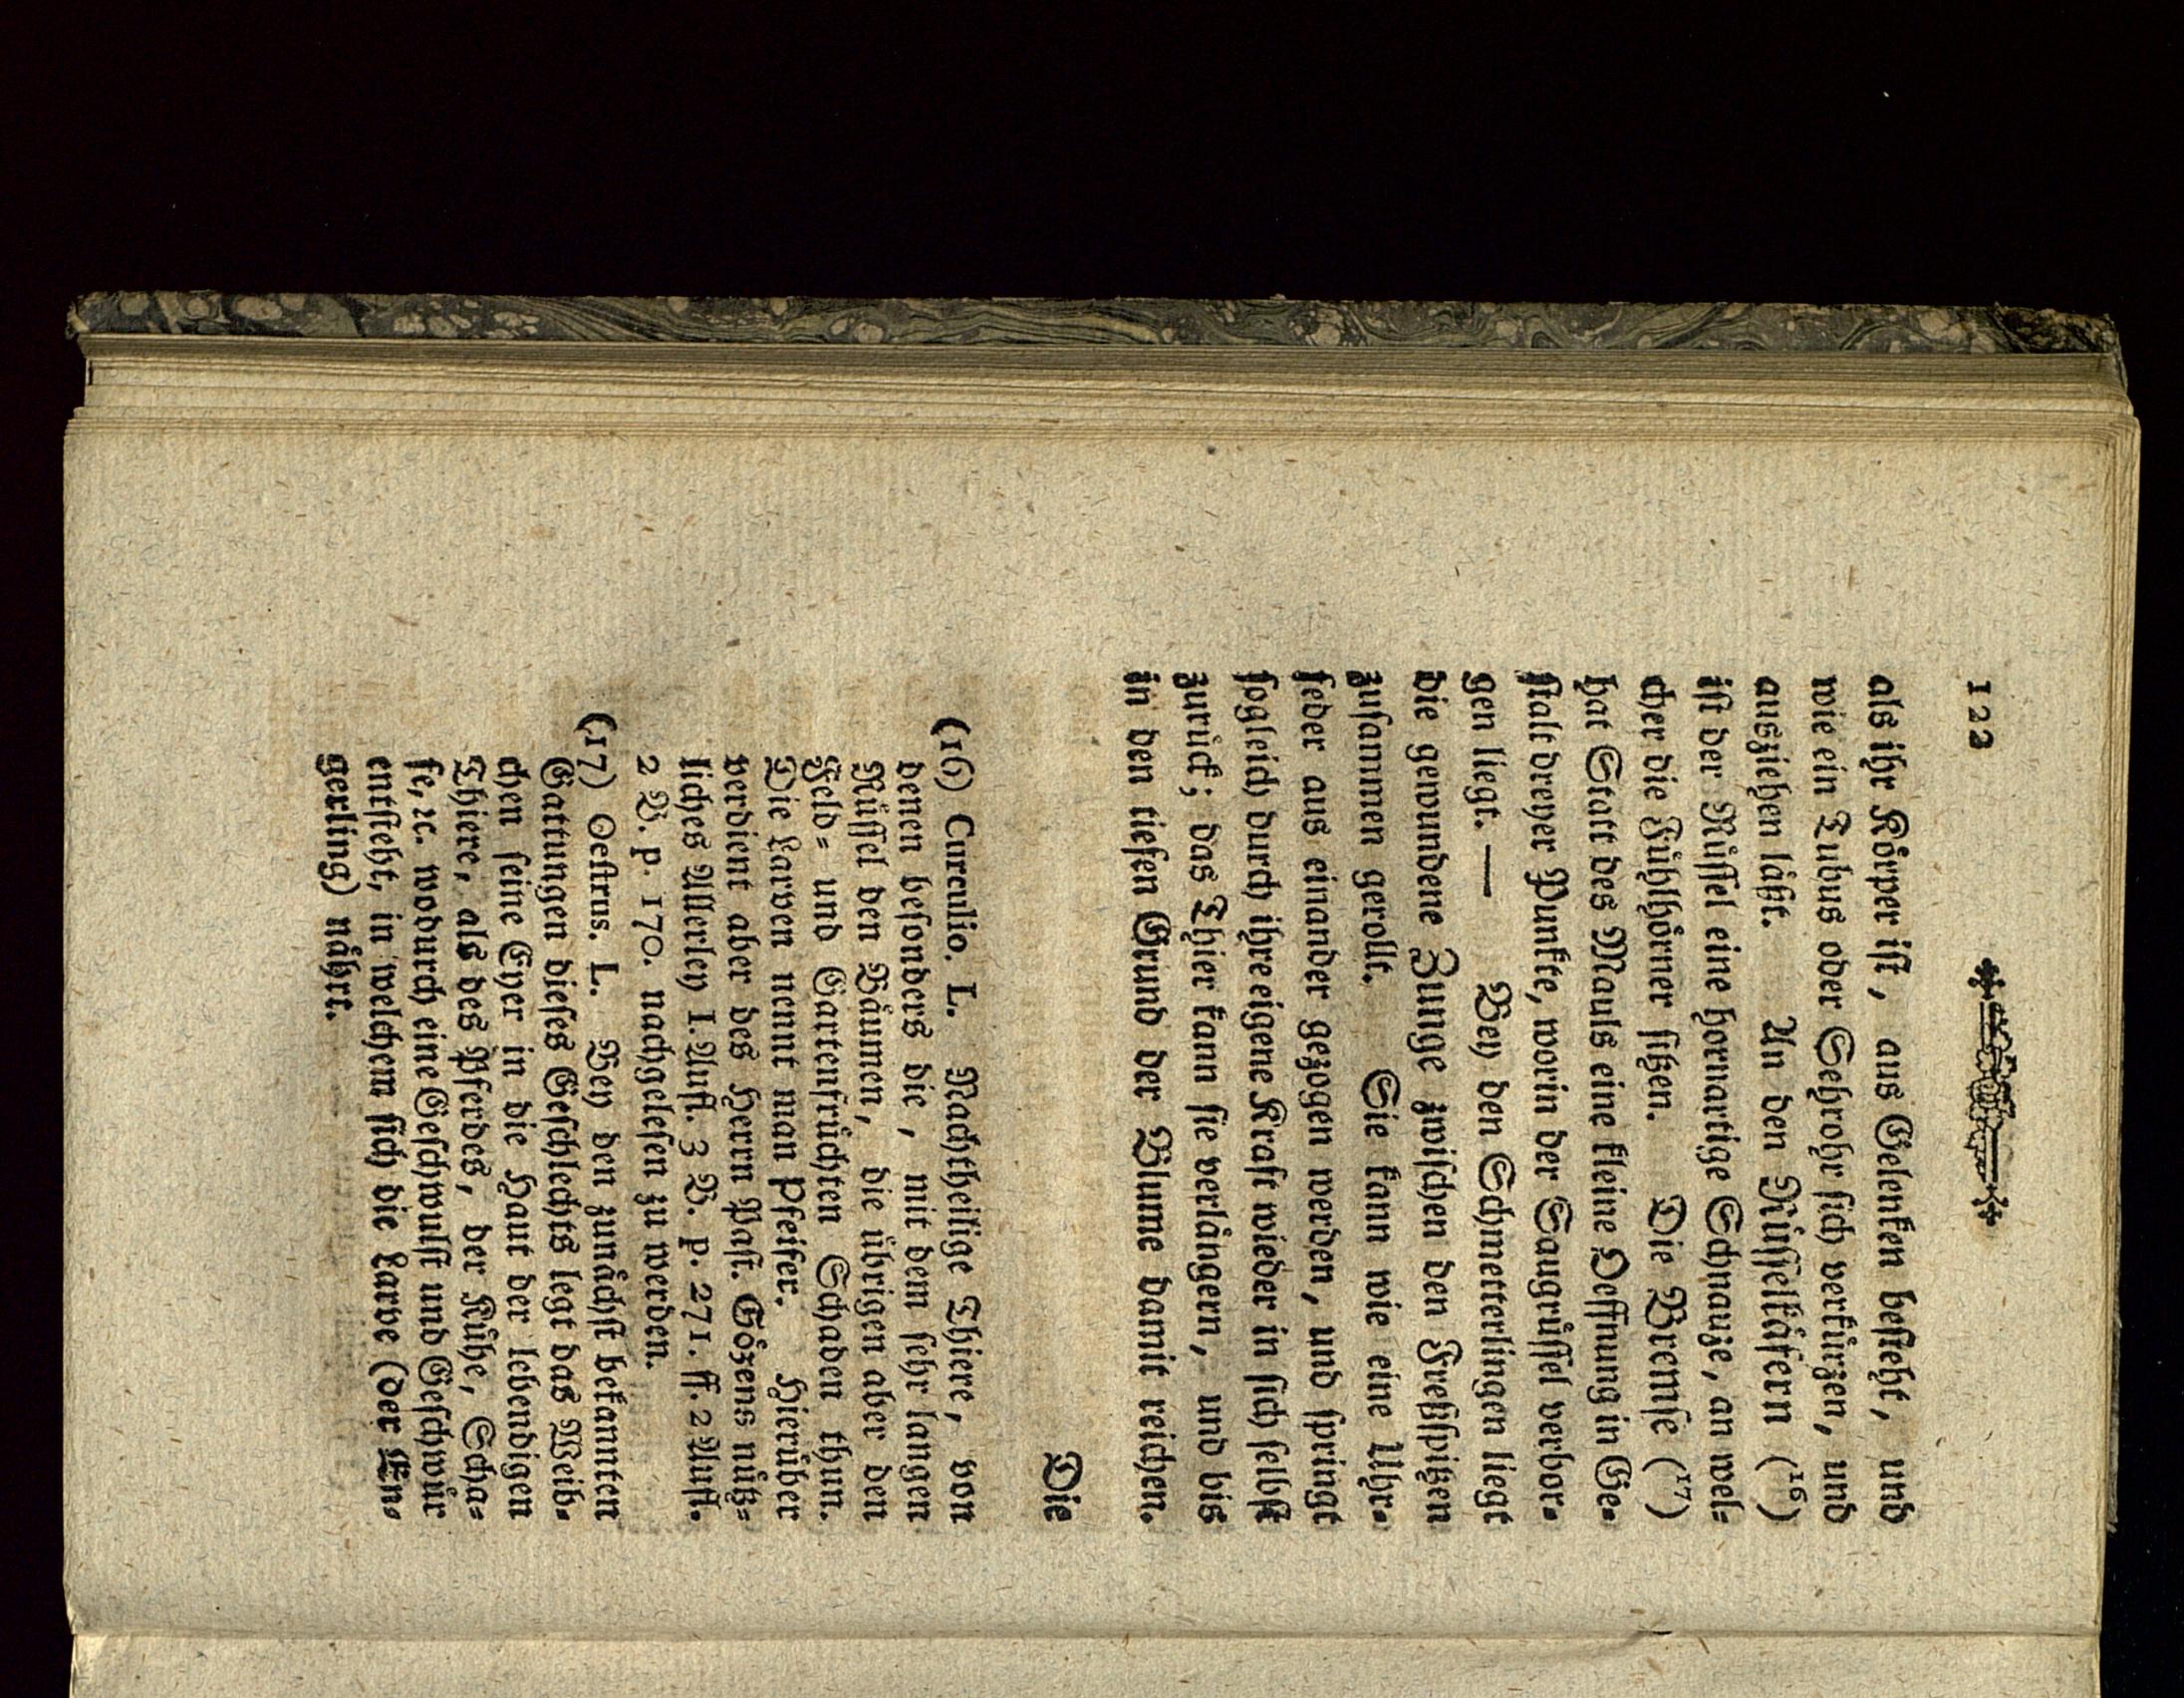 122
als ihr Körper ist, aus Gelenken besteht, und
wie ein Tubus oder Sehrohr sich verkürzen, und
ausziehen läßt. An den Rüsselkäfern (16)
ist der Rüssel eine hornartige Schnauze, an wel-
cher die Fühlhörner sitzen. Die Bremse (17)
hat Statt des Mauls eine kleine Oeffnung in Ge-
stalt dreyer Punkte, worin der Saugrüssel verbor-
gen liegt. — Bey den Schmetterlingen liegt
die gewundene Zunge zwischen den Freßspitzen
zusammen gerollt. Sie kann wie eine Uhr-
feder aus einander gezogen werden, und springt
sogleich durch ihre eigene Kraft wieder in sich selbst
zurück; das Thier kann sie verlängern, und bis
in den tiefen Grund der Blume damit reichen.
Die
(16) Curculio. L. Nachtheilige Thiere, von
denen besonders die, mit dem sehr langen
Rüssel den Bäumen, die übrigen aber den
Feld- und Gartenfrüchten Schaden thun.
Die Larven nennt man Pfeifer. Hierüber
verdient aber des Herrn Past. Gözens nütz-
liches Allerley I. Aufl. 3 B. p. 271. ff. 2 Aufl.
2 B. p. 170. nachgelesen zu werden.
(17) Oestrus. L. Bey den zunächst bekannten
Gattungen dieses Geschlechts legt das Weib-
chen seine Eyer in die Haut der lebendigen
Thiere, als des Pferdes, der Kühe, Scha-
fe, ꝛc. wodurch eine Geschwulst und Geschwür
entsteht, in welchem sich die Larve (der En-
gerling) nährt.